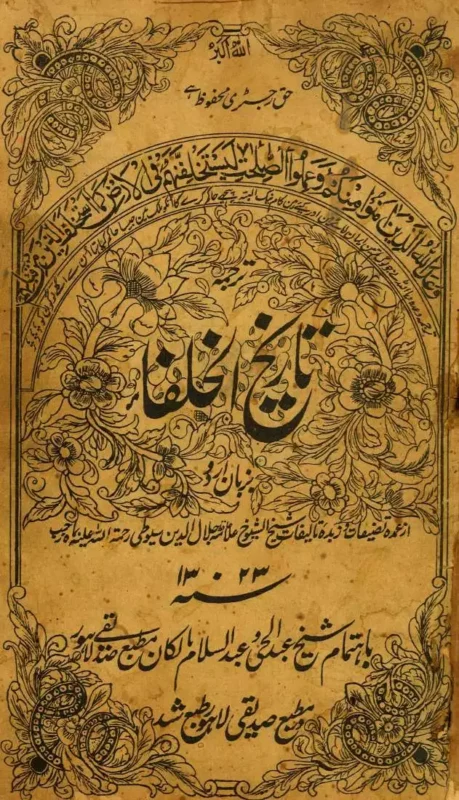 اللہ اکبر
حق رجسٹری محفوظ ہے
وعد اللہ الذین اٰمنوا منکم وعملوا الصلحٰت لیستخلفنھم فی الارض کما استخلف الذین من قبلھم
ترجمہ
تاریخ الخلفاء
بزبان اردو
از عمدہ تصنیفات و زبدہ تالیفات شیخ الشیوخ علامہ جلال الدین سیوطی رحمتہ اللہ علیہ
سنہ ۱۳۲۳
باہتمام شیخ عبد الحی و عبد السلام مالکان مطبع صدیقی لاہور
در مطبع صدیقی لاہور طبع شد